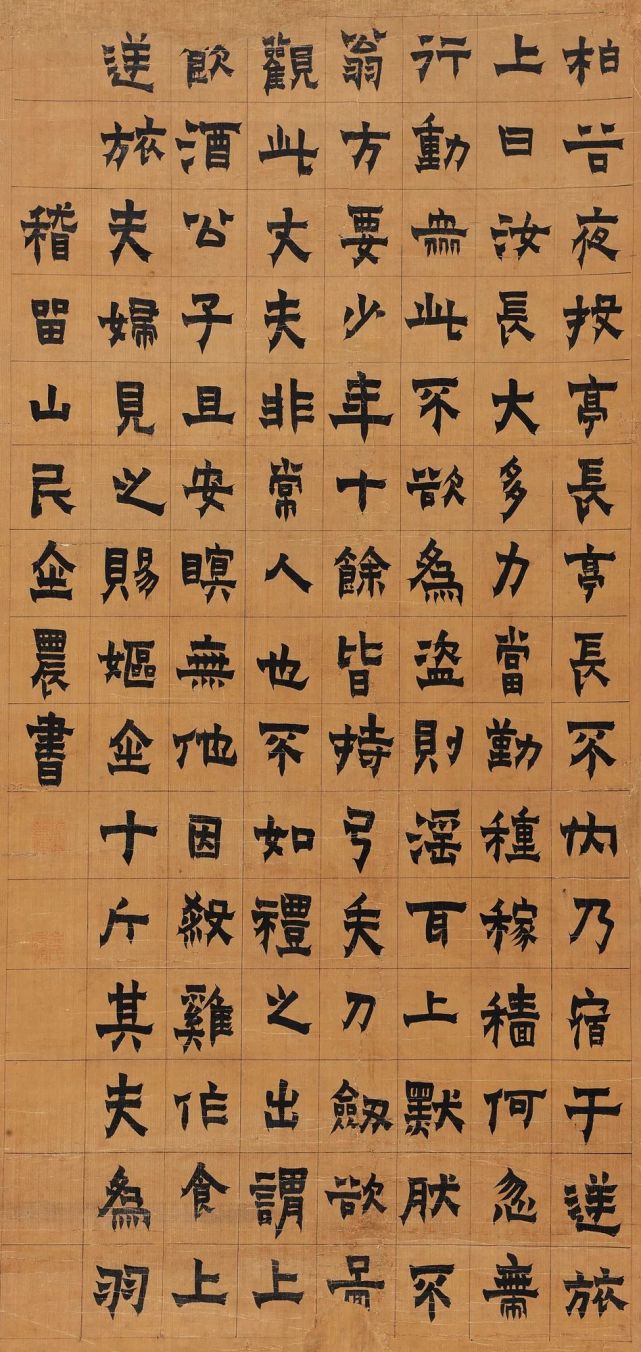 柏谷夜投亭長亭長不内乃宿于逆旅
上曰汝長大多力當勤種稼穡何忽
行動眾此不欲為盜則淫耳上默肰不
翁方要少年十餘皆持弓矢刀劒欲啚
觀此丈夫非常人也不如禮之出謂上
飲酒公子且安瞑無他因殺雞作食上
逆旅夫婦見之賜嫗金十斤其夫為羽
稽留山民金農書